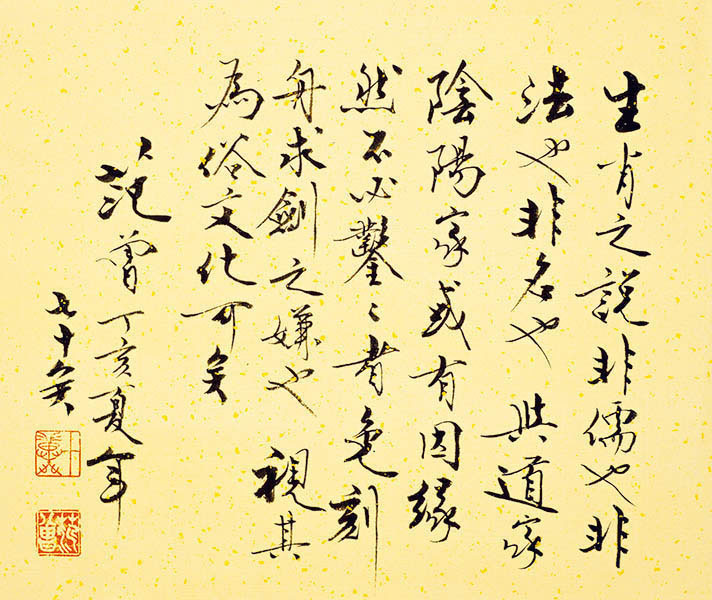 生肖之說非儒也非
法也非名也與道家
陰陽家或有因緣
然不必鑿〻者免刻
舟求劍之嫌也視其
為俗文化可矣
范曾丁亥夏年
七十矣
十翼
范曾